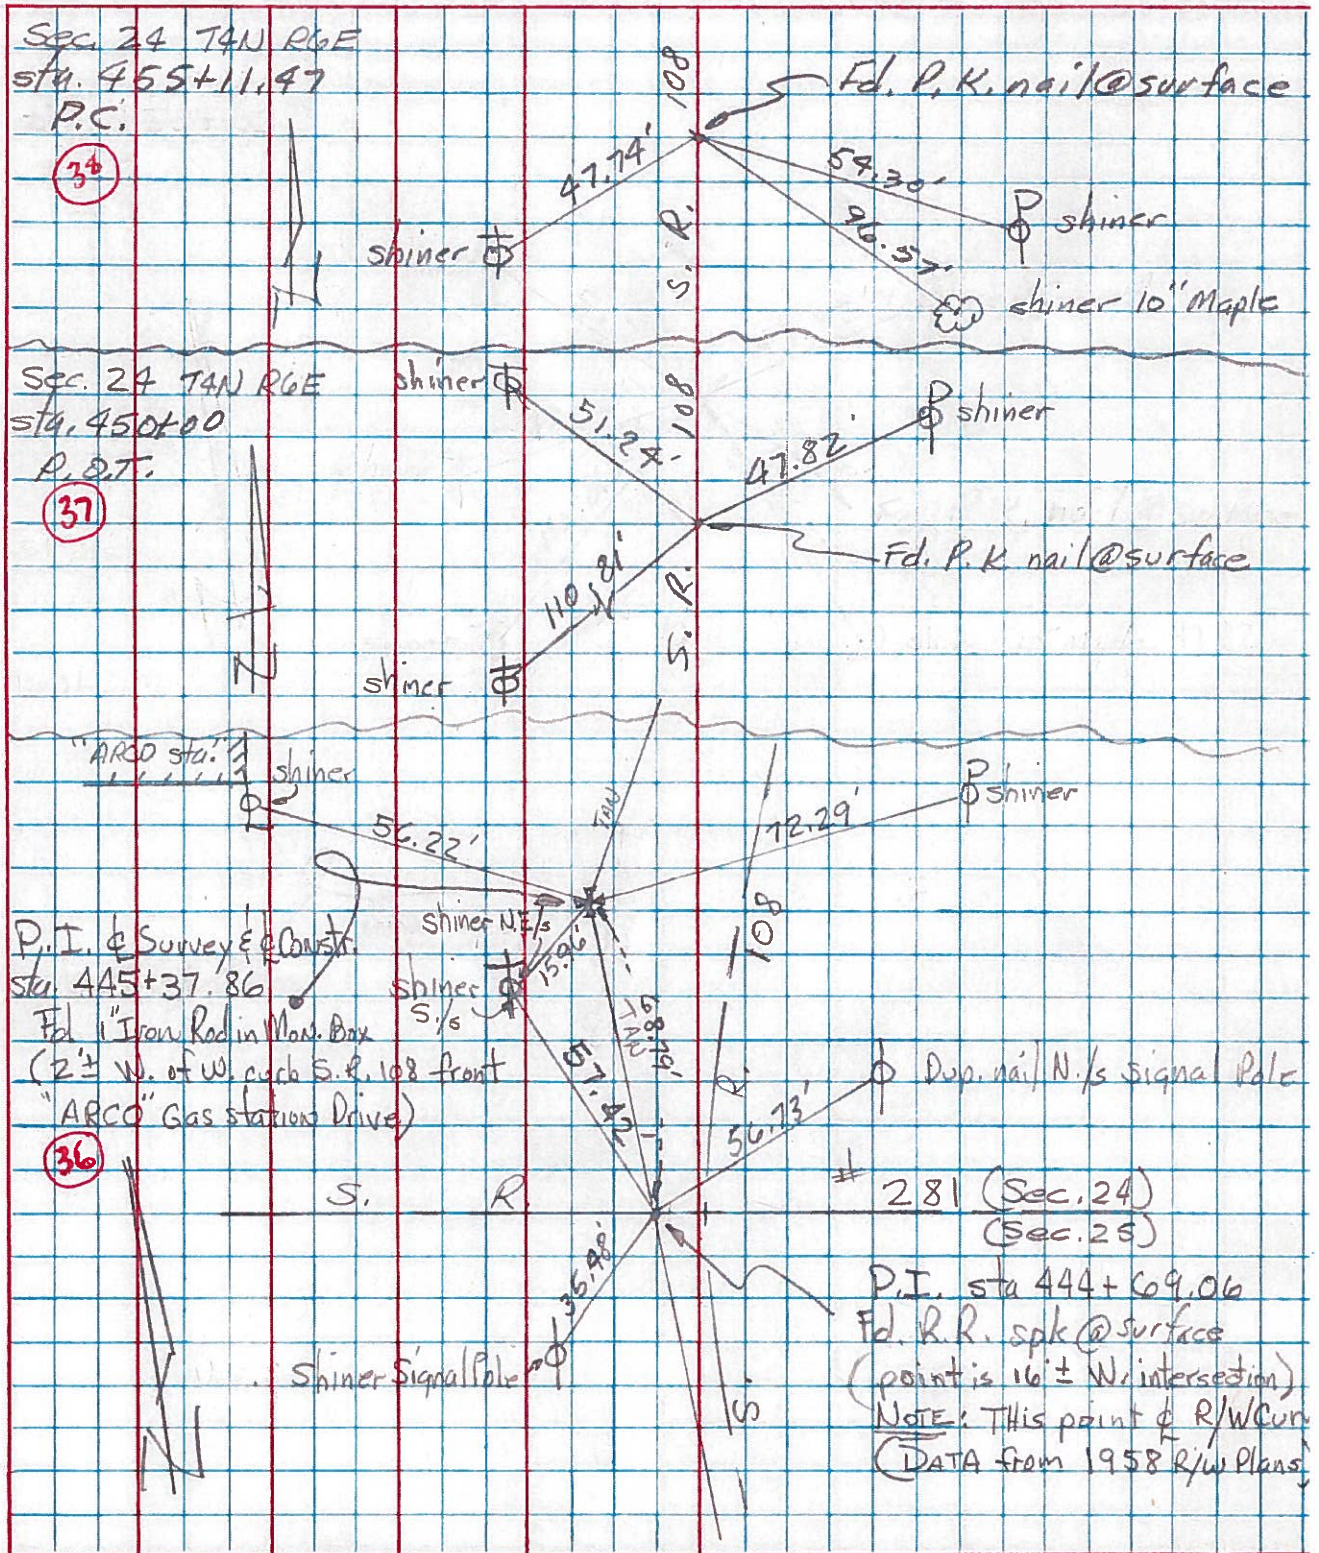 Sec. 24 T4N R6E
sta. 455+11.47
P.C.
38
108
S. R.
Fd. P.K. nail @ surface
47.74'
54.30'
96.57'
shiner
P
shiner
shiner 10" Maple
N
Sec. 24 T4N R6E
sta. 450+00
P.O.T.
37
shiner
108
S. R.
51.24'
47.82'
P
shiner
110.81'
Fd. P.K. nail @ surface
shiner
N
"ARCO sta."
shiner
56.22'
TAN
72.29'
P
shiner
108
shiner N.E/s
15.96'
P.I. ℄ Survey & ℄ Constr.
sta. 445+37.86
Fd. 1" Iron Rod in Mon. Box
(2'± W. of W. curb S.R. 108 front
"ARCO" Gas station Drive)
36
shiner
S./s
68.79'
TAN
57.42'
R.
56.73'
Dup. nail N./s Signal Pole
S. R. # 281 (Sec. 24)
(Sec. 25)
35.48'
Shiner Signal Pole
P.I. sta 444+69.06
Fd. R.R. spk @ surface
(point is 16'± W. intersection)
NOTE: THis point ℄ R/W Cur
(DATA from 1958 R/W Plans)
S.
N